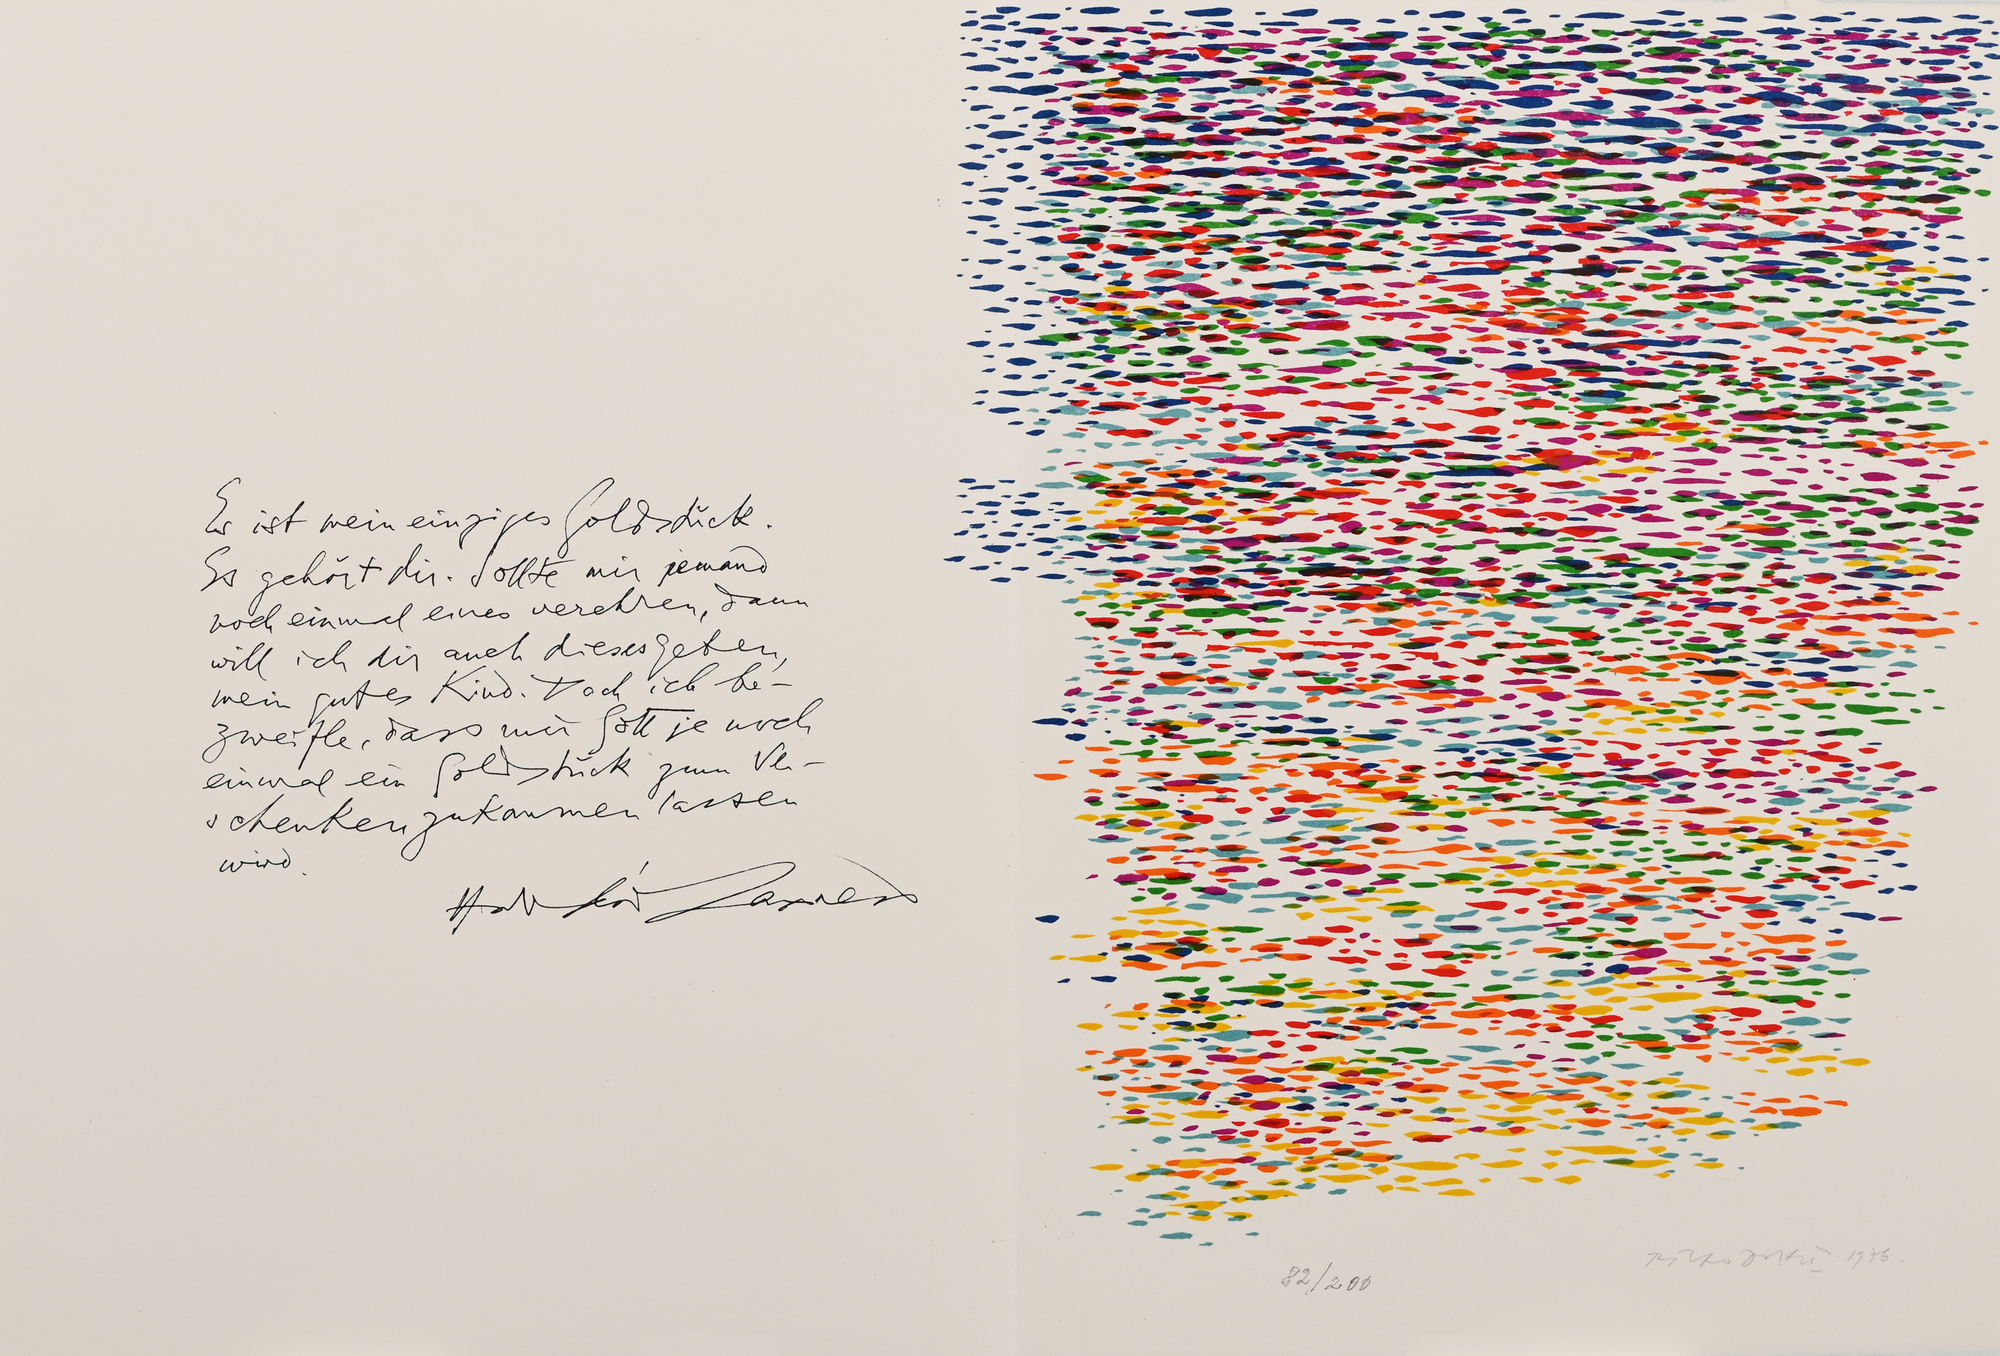 Es ist mein einziges Goldstück.
Es gehört dir. Sollte mir jemand
noch einmal eines verehren, dann
will ich dir auch dieses geben,
mein gutes Kind. Doch ich be-
zweifle, dass mir Gott je noch
einmal ein Goldstück zum Ver-
schenken zukommen lassen
wird.
Halldór Laxness
82/200
Piero Dorazio 1976.